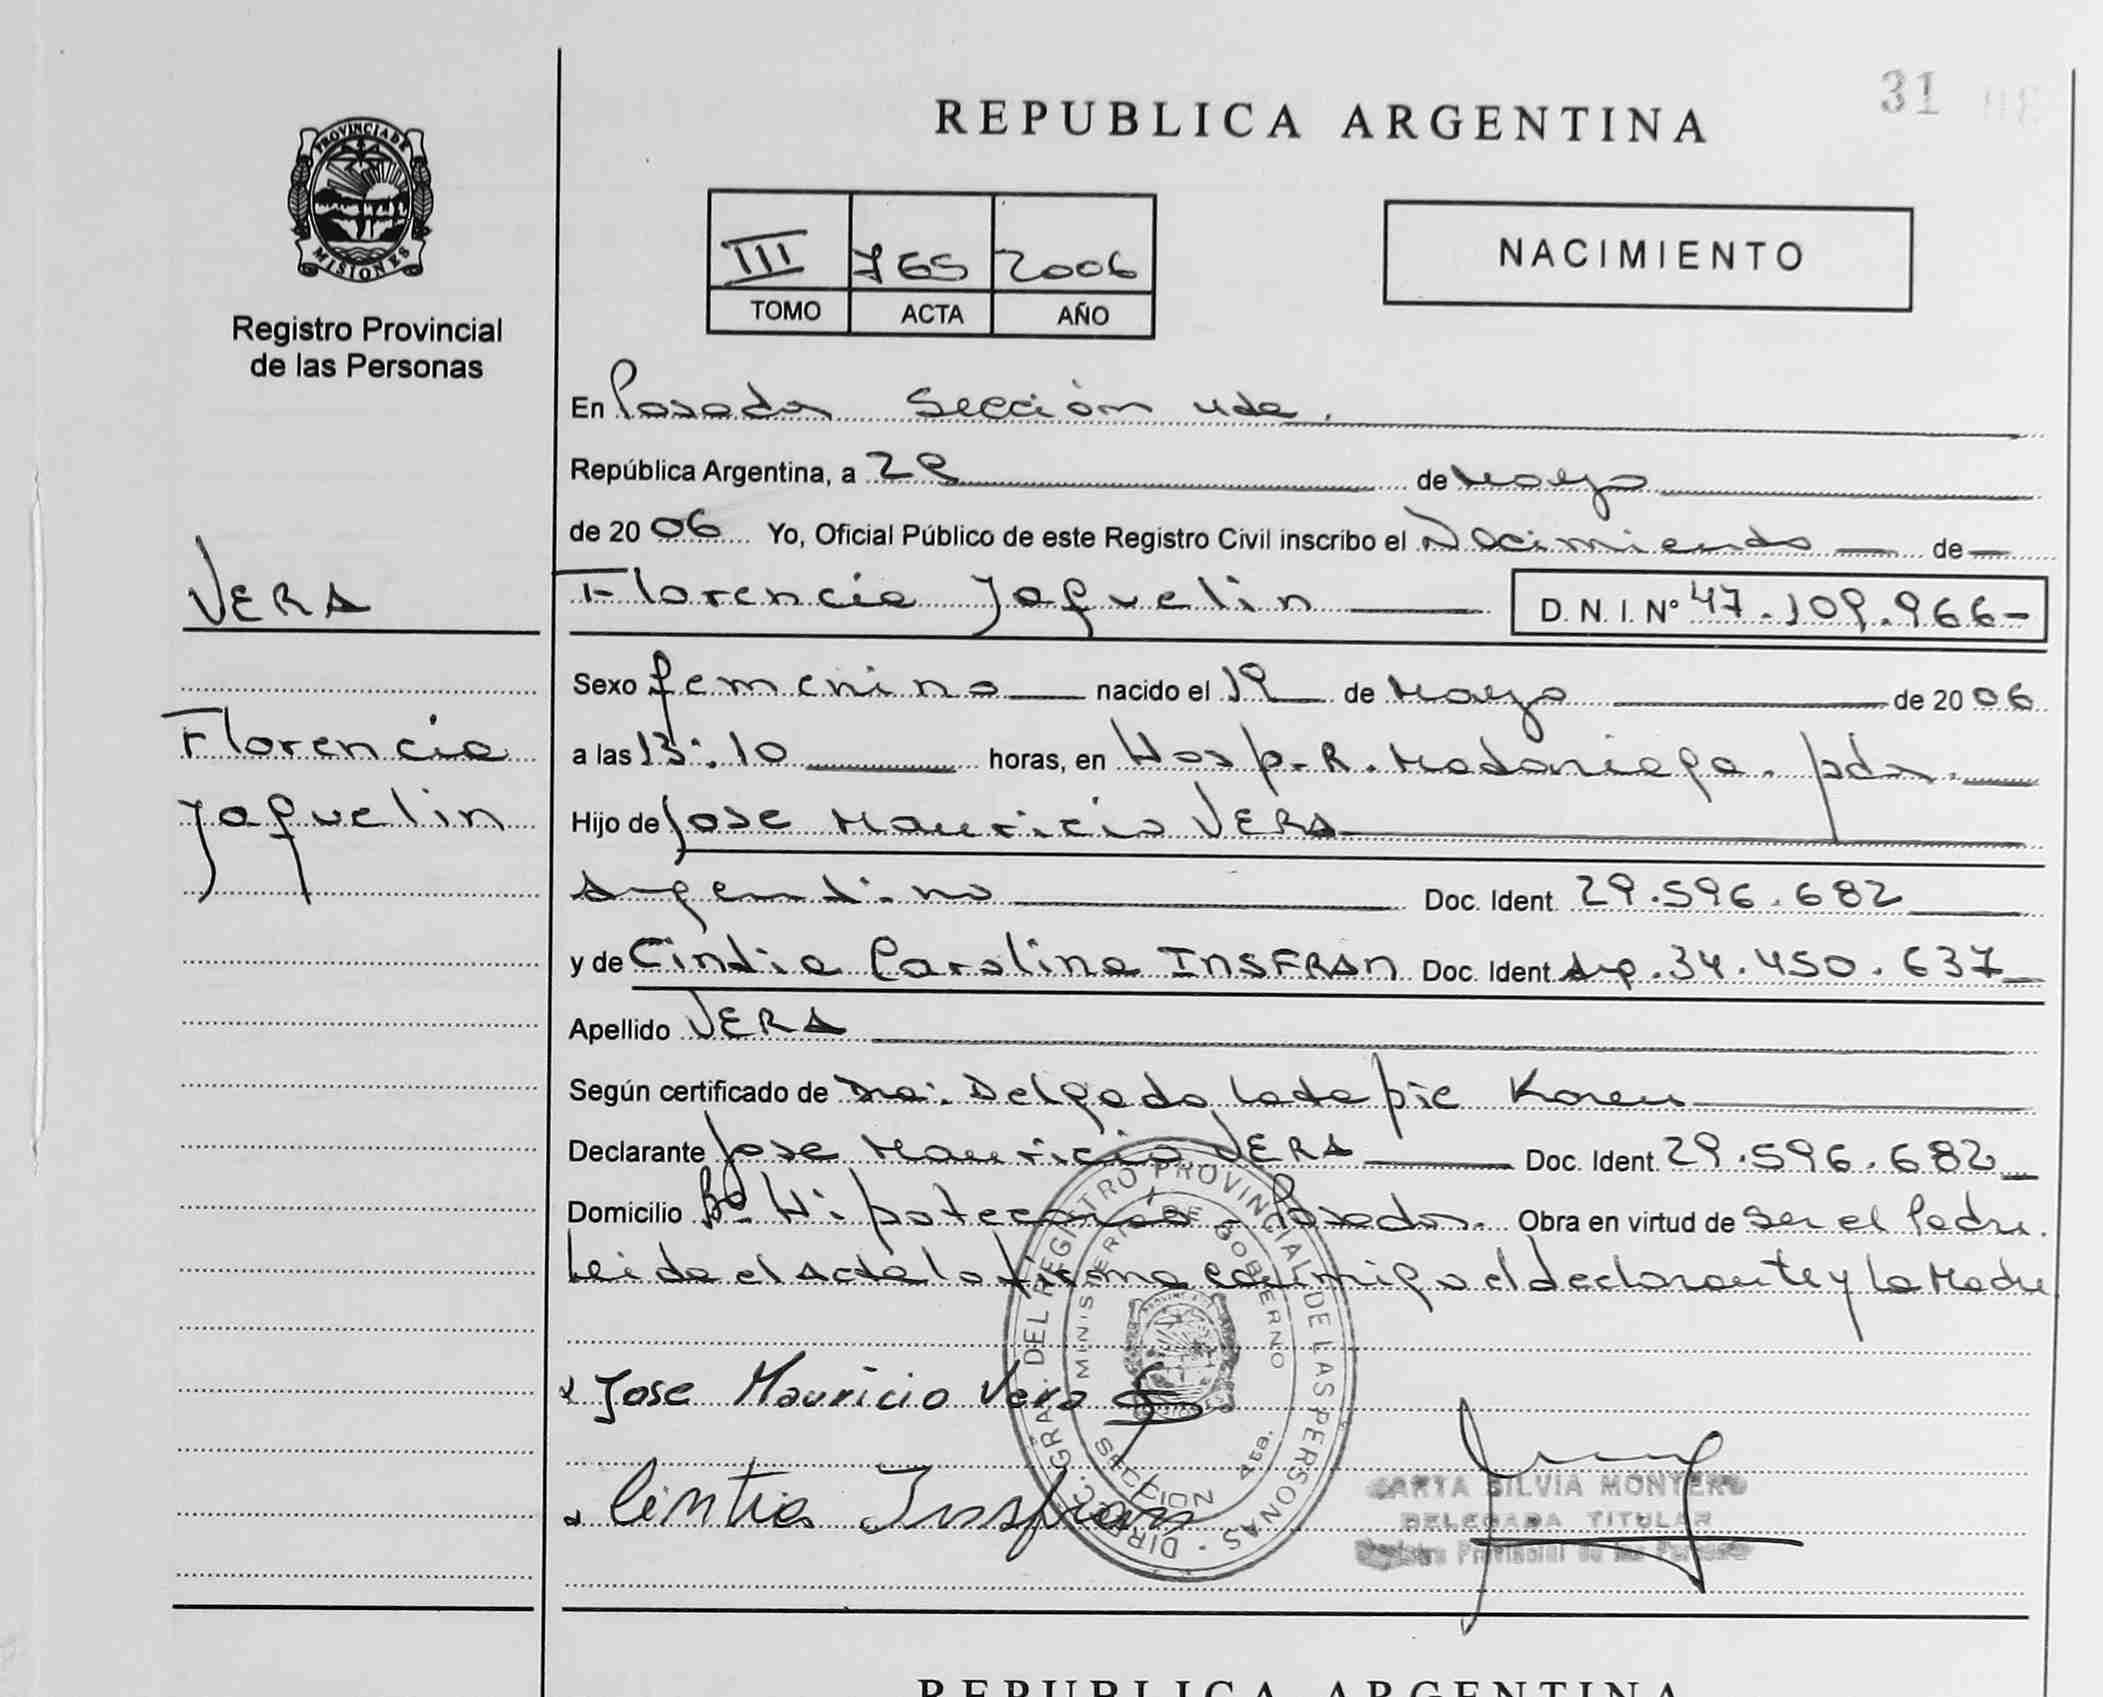 REPUBLICA ARGENTINA
31
PROVINCIA DE
MISIONES
Registro Provincial
de las Personas
III 765 2006
TOMO ACTA AÑO
NACIMIENTO
En Posadas Sección 4ta.
República Argentina, a 29 de Mayo
de 20 06 Yo, Oficial Público de este Registro Civil inscribo el Nacimiento de
VERA
Florencia Jaquelin D. N. I. Nº 47.109.966-
Sexo femenino nacido el 19 de Mayo de 20 06
Florencia
Jaquelin
a las 13:10 horas, en Hosp. R. Madariaga. pdas.
Hijo de Jose Mauricio VERA
Argentino Doc. Ident. 29.596.682
y de Cindia Carolina INSFRAN Doc. Ident. Arg. 34.450.637
Apellido VERA
Según certificado de Dra: Delgado Karen
Declarante Jose Mauricio VERA Doc. Ident. 29.596.682
Domicilio Bº Hipotecario - Posadas. Obra en virtud de ser el Padre.
Leida el Acta la firma conmigo el declarante y la Madre
Jose Mauricio Vera
Cintia Insfran
DIREC. GRAL. DEL REGISTRO PROVINCIAL DE LAS PERSONAS
MINISTERIO DE GOBIERNO
SECCION 4ta.
SILVIA MONTERO
DELEGADA TITULAR
Registro Provincial de las Personas
REPUBLICA ARGENTINA